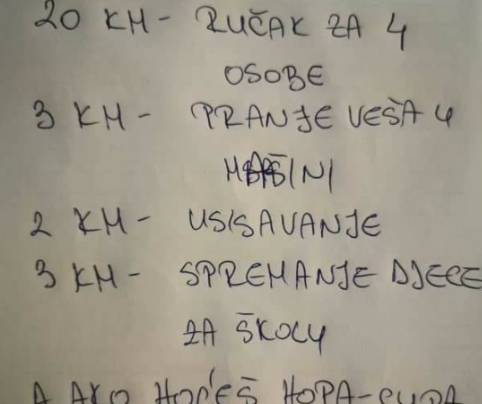 20 KM - RUČAK ZA 4
OSOBE
3 KM - PRANJE VEŠA U
MAŠINI
2 KM - USISAVANJE
3 KM - SPREMANJE DJECE
ZA ŠKOLU
A AKO HOĆEŠ HOPA-CUPA